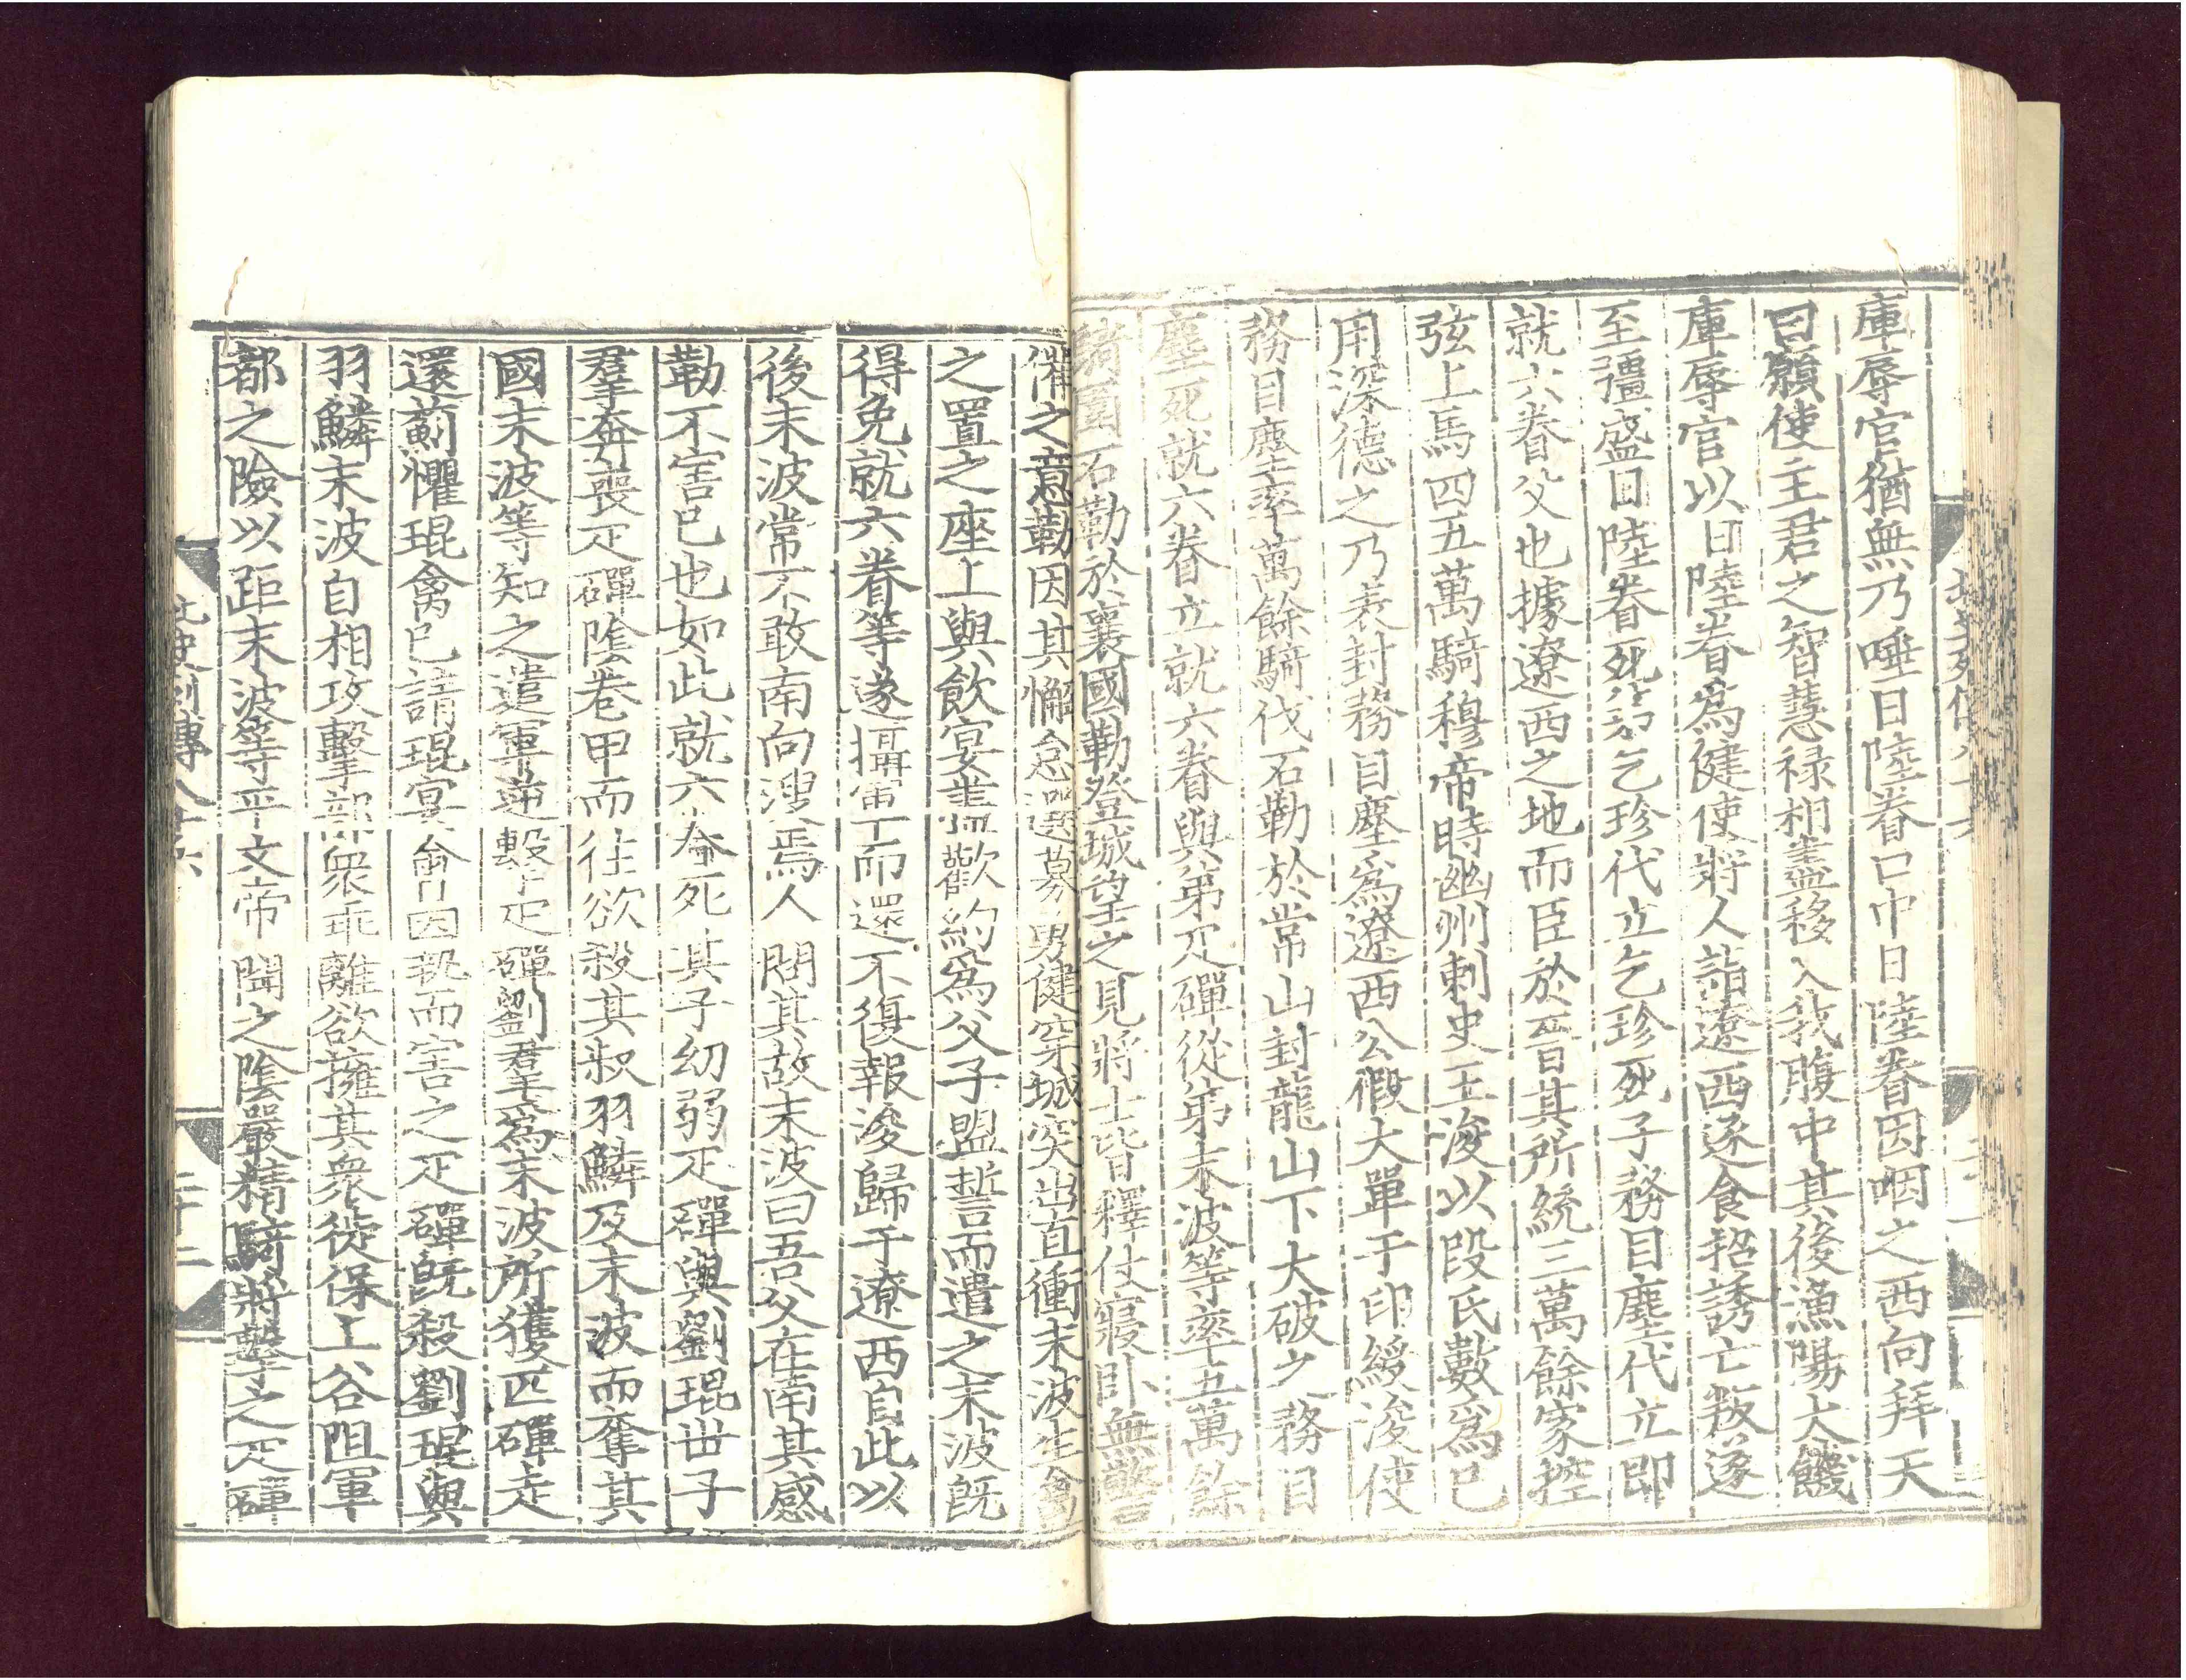 庫辱官猶無乃唾日陸眷口中日陸眷因咽之西向拜天
曰願使主君之智慧禄相盡移入我腹中其後漁陽大饑
庫辱官以日陸眷爲健使將人詣遼西逐食招誘亡叛遂
至彊盛日陸眷死弟乞珍代立乞珍死子務目塵代立即
就六眷父也據遼西之地而臣於晉其所統三萬餘家控
弦上馬四五萬騎穆帝時幽州刺史王浚以段氏數爲己
用深德之乃表封務目塵爲遼西公假大單于印綬浚使
務目塵率萬餘騎伐石勒於常山封龍山下大破之務目
塵死就六眷立就六眷與弟疋磾從弟末波等率五萬餘
騎圍石勒於襄國勒登城望之見將士皆釋仗寢卧無警
備之意勒因其懈怠選募勇健穿城突出直衝末波生禽
之置之座上與飲宴盡歡約爲父子盟誓而遣之末波既
得免就六眷等遂攝軍而還不復報浚歸于遼西自此以
後末波常不敢南向溲焉人問其故末波曰吾父在南其感
勒不害已也如此就六眷死其子幼弱疋磾與劉琨世子
羣奔喪疋磾陰卷甲而往欲殺其叔羽鱗及末波而奪其
國末波等知之遣軍逆擊疋磾劉羣爲末波所獲疋磾走
還薊懼琨禽已請琨宴會因執而害之疋磾既殺劉琨與
羽鱗末波自相攻擊部衆乖離欲擁其衆徙保上谷阻軍
都之險以距末波等平文帝聞之陰嚴精騎將擊之疋磾
北史列傳八十六
二十二